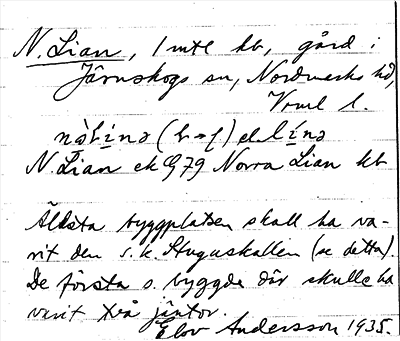 N. Lian, 1 mtl kb, gård i
Järnskogs sn, Nordmarks hd,
Vrml l.
el. línə
N. Lian ek G79 Norra Lian kb
Äldsta byggplatsen skall ha va-
rit den s. k. Stuguskallen (se detta).
De första s. byggde där skulle ha
varit två jäntor.
Elov Andersson 1935.